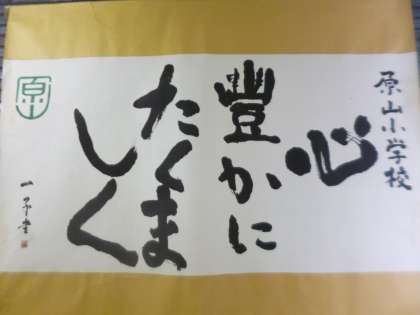 原山小学校
心
豊かに
たくま
しく
原